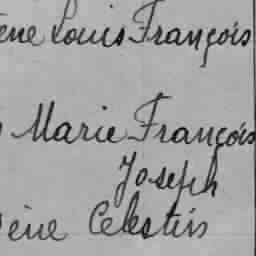 ène Louis François
Marie François
Joseph
ène Celestin